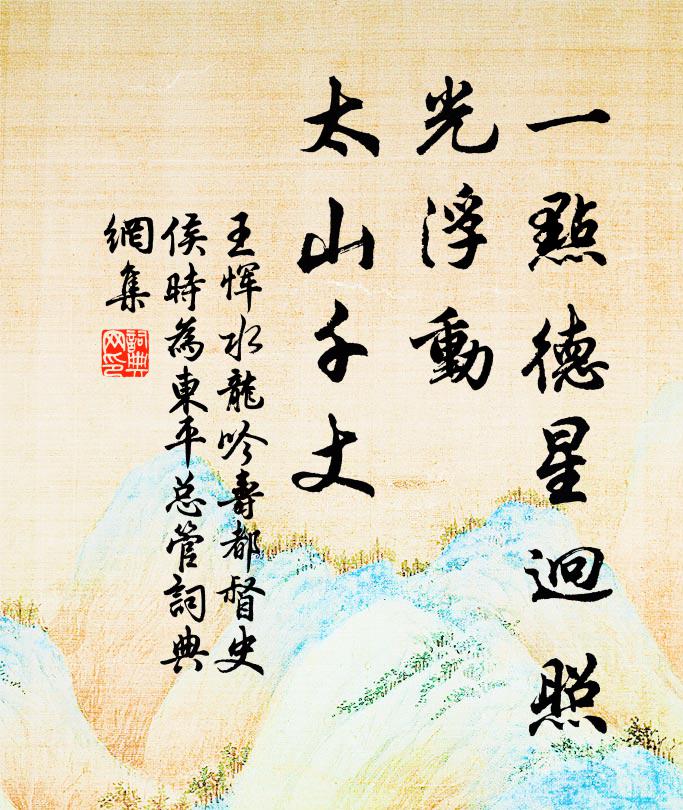 一點德星迥照
光浮動
太山千丈
王恽水龍吟壽都督史
侯時為東平总管詞典
網集
詞典
网印